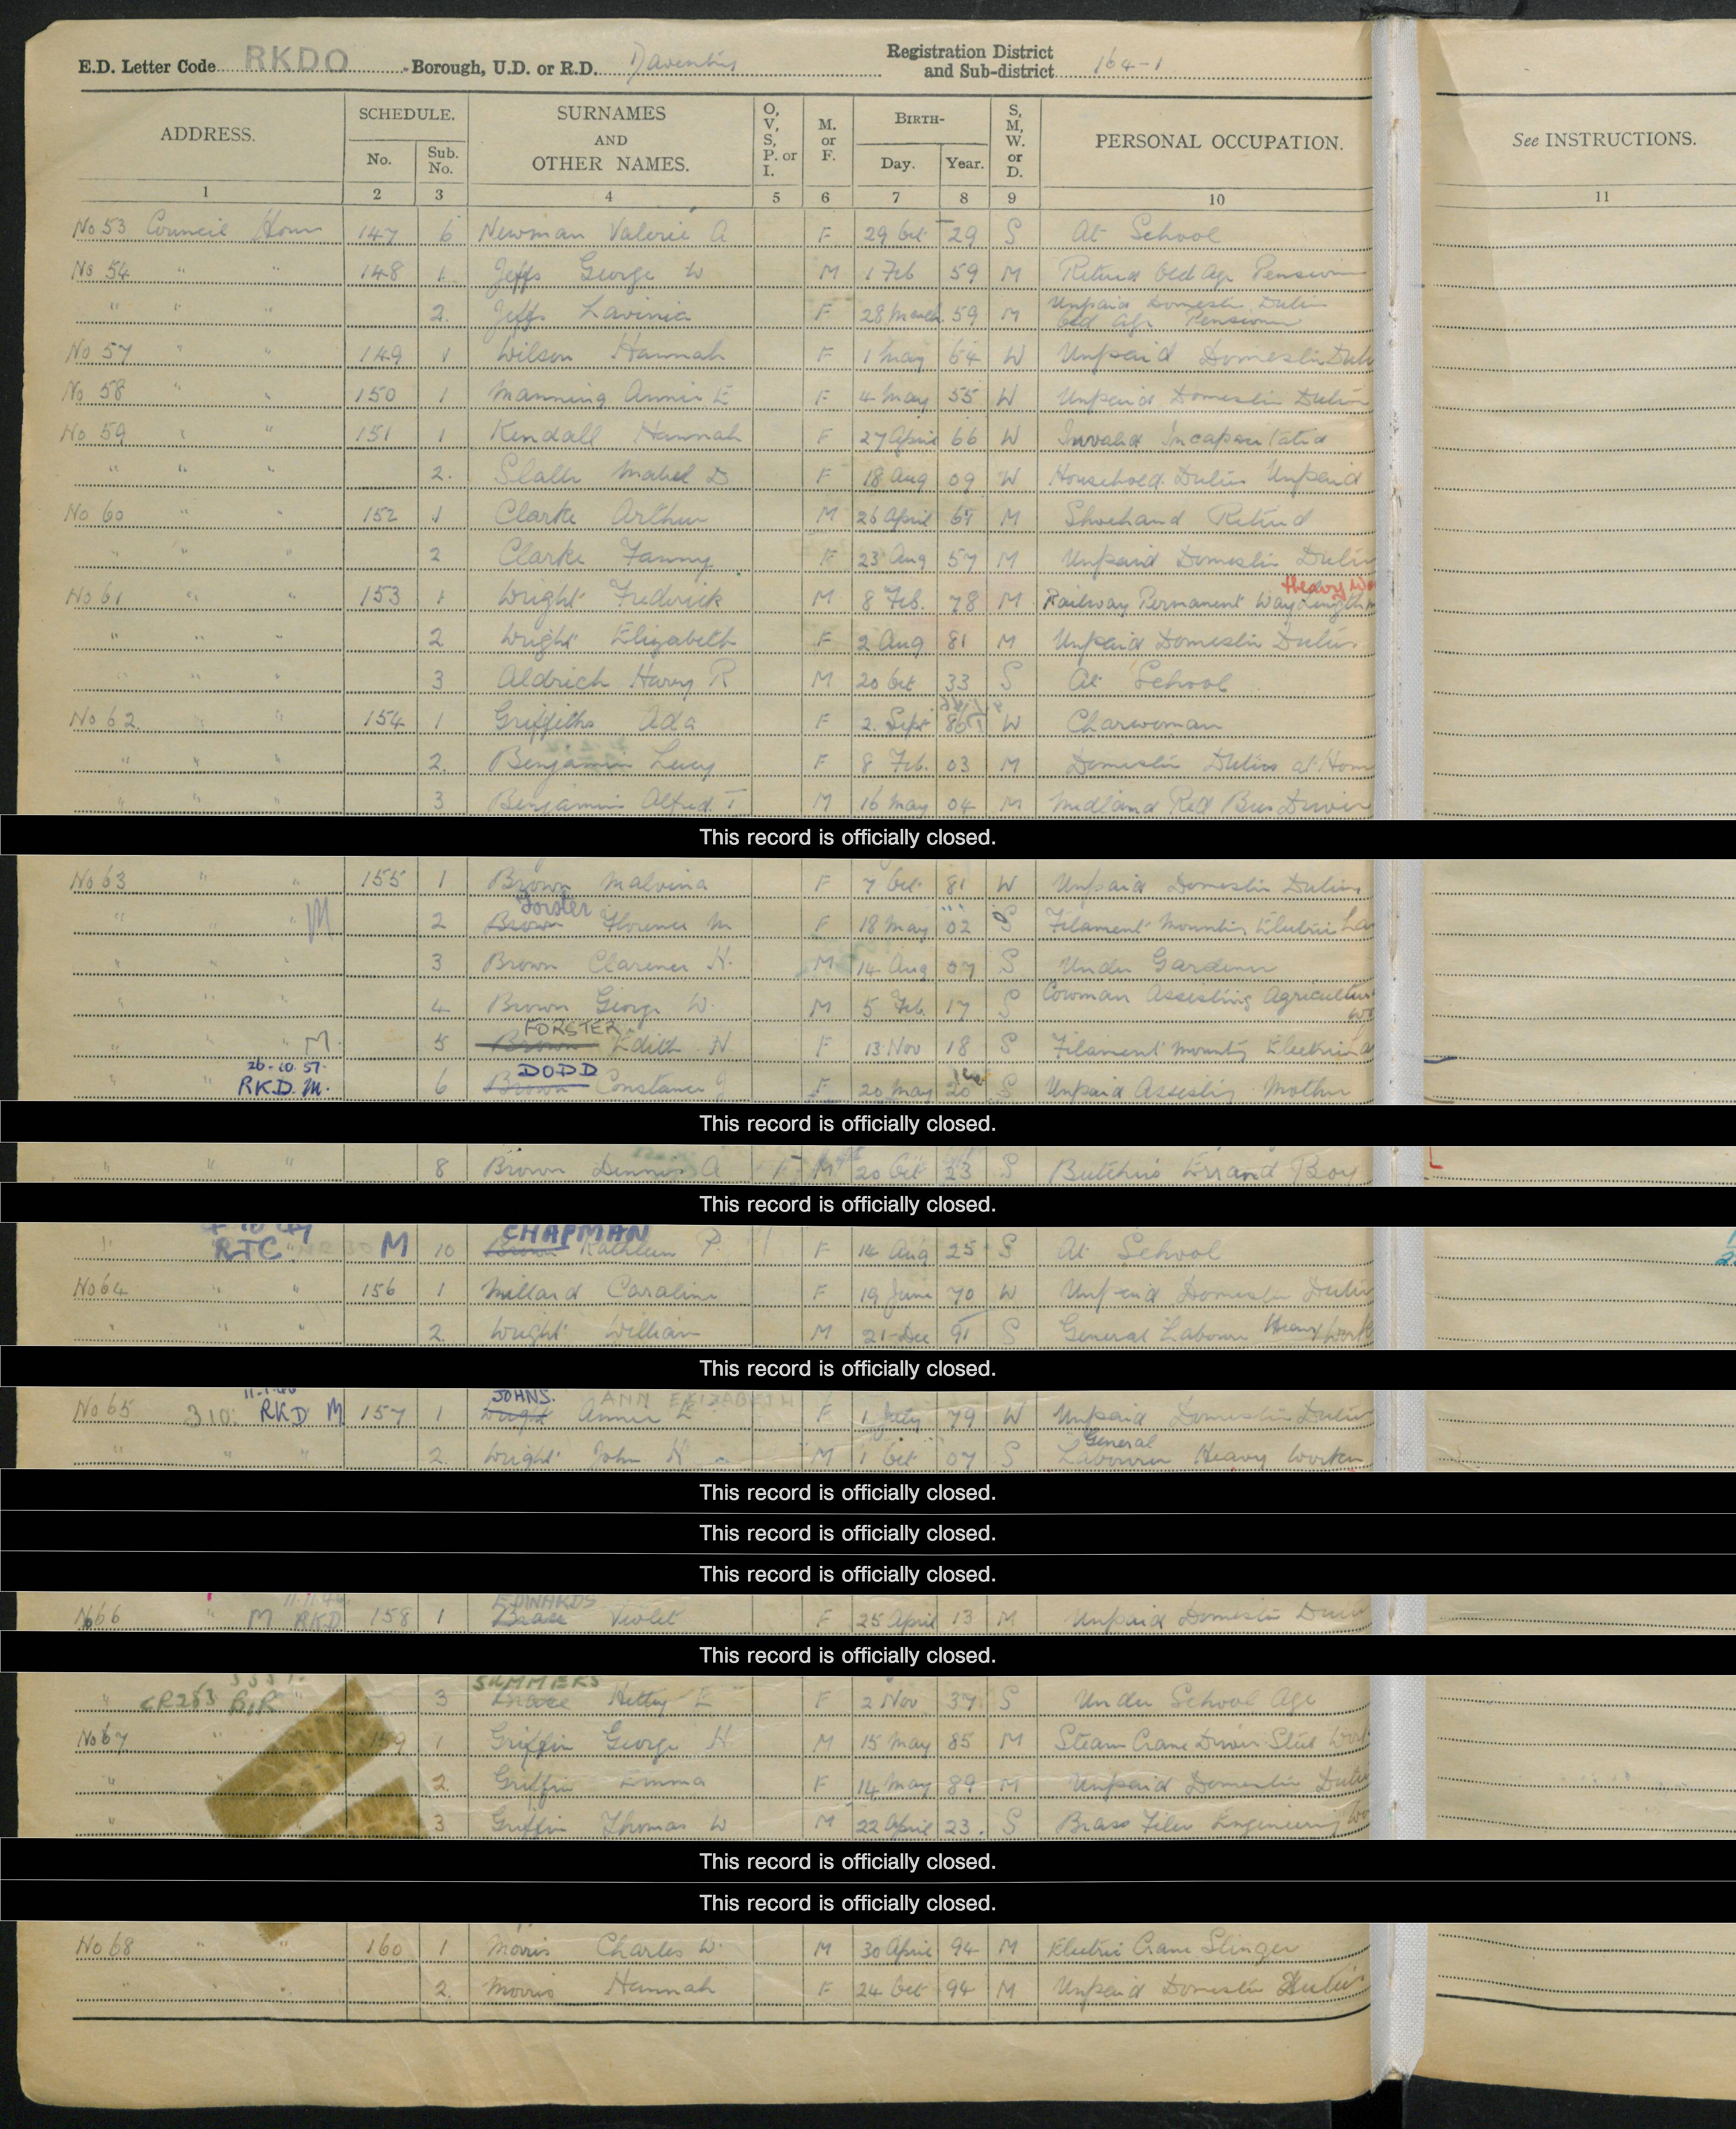 E.D. Letter Code RKDO Borough, U.D. or R.D. Daventry Registration District and Sub-district 164-1
ADDRESS. SCHEDULE. No. Sub. No. SURNAMES AND OTHER NAMES. O, V, S, P. or I. M. or F. BIRTH- Day. Year. S, M, W. or D. PERSONAL OCCUPATION. See INSTRUCTIONS.
1 2 3 4 5 6 7 8 9 10 11
No 53 Council Houses 147 6 Newman Valerie A F 29 Oct 29 S At School
No 54 " " 148 1 Jeffs George W M 1 Feb 59 M Retired Old Age Pensioner
" " " 2. Jeffs Lavinia F 28 March 59 M Unpaid Domestic Duties Old Age Pensioner
No 57 " " 149 1 Wilson Hannah F 1 May 64 W Unpaid Domestic Duties
No 58 " " 150 1 Manning Annie E F 4 May 55 W Unpaid Domestic Duties
No 59 " " 151 1 Kendall Hannah F 27 April 66 W Invalid Incapacitated
" " " 2. Slater Mabel D F 18 Aug 09 W Household Duties Unpaid
No 60 " " 152 1 Clarke Arthur M 26 April M Shoehand Retired
" " " 2 Clarke Fanny F 23 Aug 57 M Unpaid Domestic Duties
No 61 " " 153 1 Wright Frederick M 8 Feb. 78 M Railway Permanent Way Lengthm Heavy Wo
" " " 2 Wright Elizabeth F 2 Aug 81 M Unpaid Domestic Duties
" " " 3 Aldrich Harry R M 20 Oct 33 S At School
No 62. " " 154 1 Griffiths Ada F 2. Sept W Charwoman
" " " 2. Benjamin Lucy F 8 Feb. 03 M Domestic Duties at Home
" " " 3 Benjamin Alfred T M 16 May 04 M Midland Red Bus Driver
This record is officially closed.
No 63 " " 155 1 Brown Malvina F 7 Oct 81 W Unpaid Domestic Duties
" " M 2 Brown Forster Florence M F 18 May 02 S Filament Mounting Electric La
" " " 3 Brown Clarence H. M 14 Aug 07 S Under Gardener
" " " 4 Brown George W. M 5 Feb. 17 S Cowman Assisting Agricultur
" " M. 5 Brown FORSTER Edith N F 13 Nov 18 S Filament Mounty Electric
26.10.57. RKD. M. 6 Brown DODD Constance J F 20 May 20 S Unpaid Assisting Mother
This record is officially closed.
" " " 8 Brown Dennis A M 20 Oct 23 S Butchers Errand Boy
This record is officially closed.
RTC. M 10 Brown CHAPMAN Kathleen P. F 14 Aug 25 S At School
No 64 " " 156 1 Millard Caroline F 19 June 70 W Unpaid Domestic Duties
" " " 2. Wright William M 21 Dec 91 S General Labourer Heavy Work
This record is officially closed.
No 65 310. RKD M 157 1 Wright JOHNS. Annie E ANN ELIZABETH F 1 July 79 W Unpaid Domestic Duties
" " " 2. Wright John H M 1 Oct 07 S General Labourer Heavy Worker
This record is officially closed.
This record is officially closed.
This record is officially closed.
No 66 " M RKD 158 1 EDWARDS Violet F 25 April 13 M Unpaid Domestic Duties
This record is officially closed.
" CR283 BIR 3 SUMMERS Hetty E F 2 Nov 37 S Under School Age
No 67 " 159 1 Griffin George H M 15 May 85 M Steam Crane Driver Steel Work
" 2. Griffin Emma F 14 May 89 M Unpaid Domestic Duties
" 3 Griffin Thomas W M 22 April 23. S Brass Filer Engineering Wo
This record is officially closed.
This record is officially closed.
No 68 " " 160 1 Morris Charles W. M 30 April 94 M Electric Crane Slinger
" " 2. Morris Hannah F 24 Oct 94 M Unpaid Domestic Duties